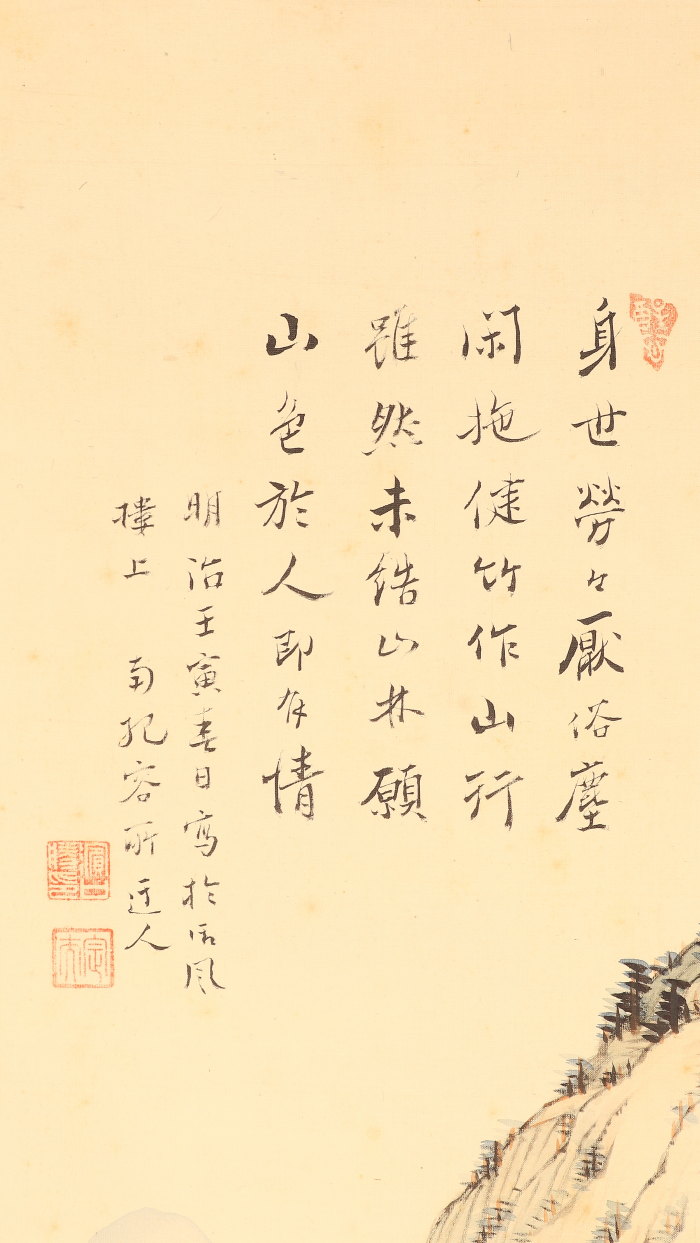 身世勞々厭俗塵
閑拖健竹作山行
雖然未結山林願
山色於人即有情
明治壬寅春日寫於 風
樓上 南紀容所 人